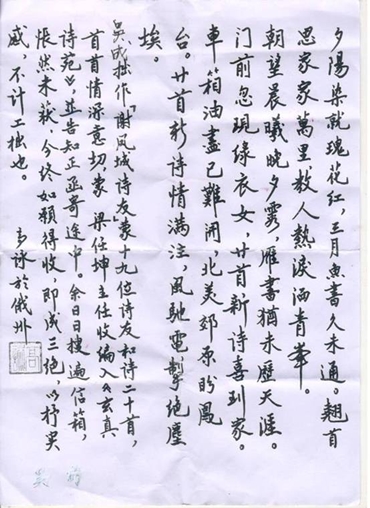 夕陽染就瑰花红，三月魚書久未通。翘首
思家家萬里，教人熱淚洒青峯。
朝望晨曦晚夕雾，雁書猶未歷天涯。
門前忽現綠衣女，廿首新诗喜到家。
車箱油盡已難開，北美郊原盼鳳
台。廿首新诗情满注，風馳電掣绝塵
埃。
吴成拙作『謝风城诗友蒙十九位诗友和诗二十首，
首首情深意切，蒙 梁任坤主任收编入《玄真
诗苑》，並告知正函寄途中。余日日搜遍信箱，
怅然未获，今终如願得收，即成三绝，以抒哭
感，不计工拙也。
於俄州